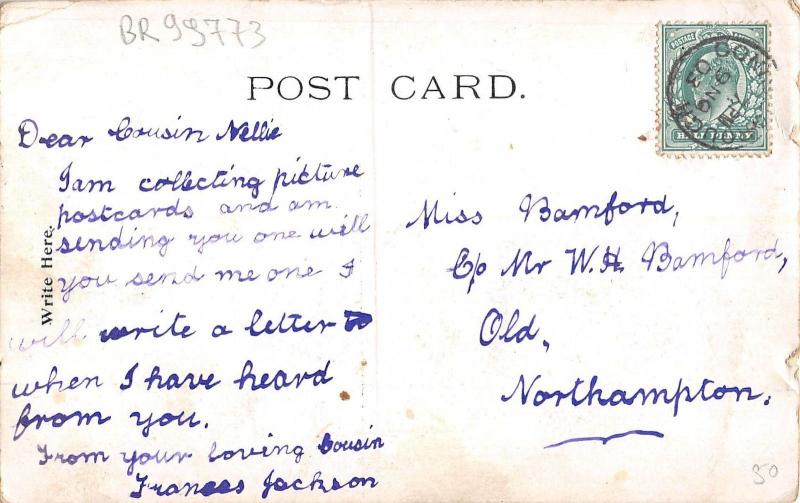 BR99773
POST CARD.
Dear Cousin Nellie
I am collecting picture
postcards and am
sending you one will
you send me one I
will write a letter
when I have heard
from you.
From your loving Cousin
Frances Jackson
Write Here.
Miss Bamford,
C/o Mr W.H. Bamford,
Old,
Northampton.
POSTAGE
HALFPENNY
03
50